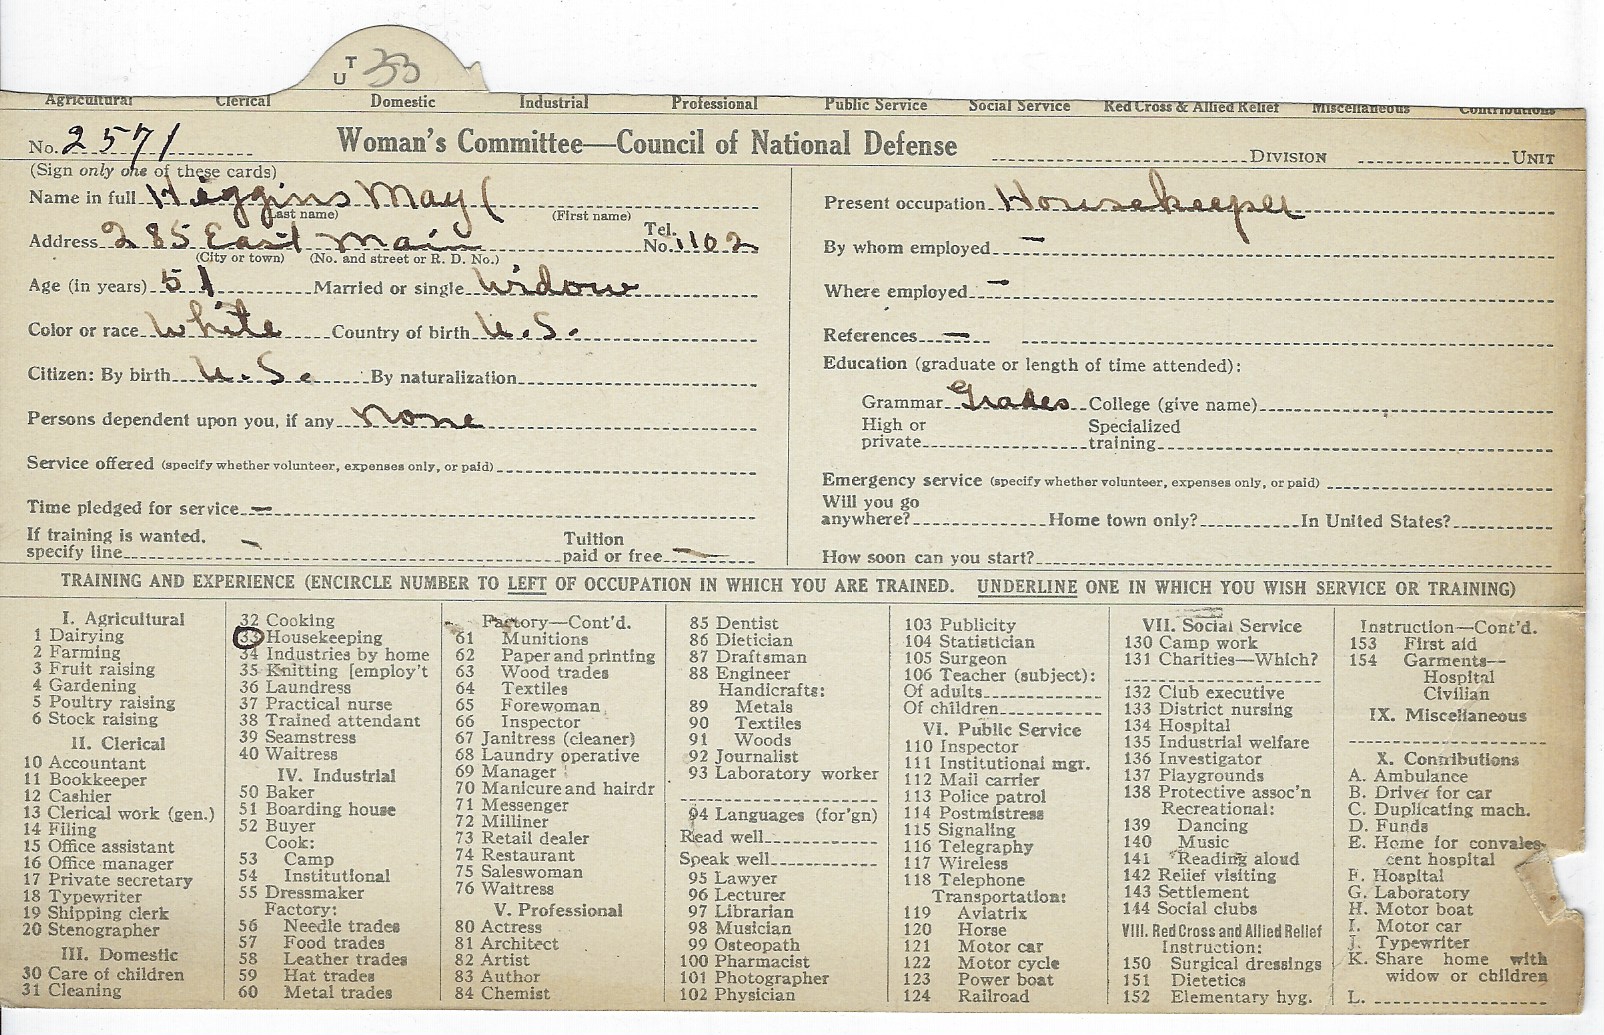 U T 33
Agricultural Clerical Domestic Industrial Professional Public Service Social Service Red Cross & Allied Relief Miscellaneous Contributions
No. 2571 Woman's Committee—Council of National Defense DIVISION UNIT
(Sign only one of these cards)
Name in full Higgins May (
(Last name) (First name)
Address 285 East Main Tel. No. 1102
(City or town) (No. and street or R. D. No.)
Age (in years) 51 Married or single Widow
Color or race White Country of birth U.S.
Citizen: By birth U.S. By naturalization
Persons dependent upon you, if any none
Service offered (specify whether volunteer, expenses only, or paid)
Time pledged for service —
If training is wanted, specify line — Tuition paid or free —
Present occupation Housekeeper
By whom employed —
Where employed —
References —
Education (graduate or length of time attended):
Grammar Grades College (give name)
High or private Specialized training
Emergency service (specify whether volunteer, expenses only, or paid)
Will you go anywhere? Home town only? In United States?
How soon can you start?
TRAINING AND EXPERIENCE (ENCIRCLE NUMBER TO LEFT OF OCCUPATION IN WHICH YOU ARE TRAINED. UNDERLINE ONE IN WHICH YOU WISH SERVICE OR TRAINING)
I. Agricultural
1 Dairying
2 Farming
3 Fruit raising
4 Gardening
5 Poultry raising
6 Stock raising
II. Clerical
10 Accountant
11 Bookkeeper
12 Cashier
13 Clerical work (gen.)
14 Filing
15 Office assistant
16 Office manager
17 Private secretary
18 Typewriter
19 Shipping clerk
20 Stenographer
III. Domestic
30 Care of children
31 Cleaning
32 Cooking
33 Housekeeping
34 Industries by home
35 Knitting [employ't
36 Laundress
37 Practical nurse
38 Trained attendant
39 Seamstress
40 Waitress
IV. Industrial
50 Baker
51 Boarding house
52 Buyer
Cook:
53 Camp
54 Institutional
55 Dressmaker
Factory:
56 Needle trades
57 Food trades
58 Leather trades
59 Hat trades
60 Metal trades
Factory—Cont'd.
61 Munitions
62 Paper and printing
63 Wood trades
64 Textiles
65 Forewoman
66 Inspector
67 Janitress (cleaner)
68 Laundry operative
69 Manager
70 Manicure and hairdr
71 Messenger
72 Milliner
73 Retail dealer
74 Restaurant
75 Saleswoman
76 Waitress
V. Professional
80 Actress
81 Architect
82 Artist
83 Author
84 Chemist
85 Dentist
86 Dietician
87 Draftsman
88 Engineer
Handicrafts:
89 Metals
90 Textiles
91 Woods
92 Journalist
93 Laboratory worker
94 Languages (for'gn)
Read well
Speak well
95 Lawyer
96 Lecturer
97 Librarian
98 Musician
99 Osteopath
100 Pharmacist
101 Photographer
102 Physician
103 Publicity
104 Statistician
105 Surgeon
106 Teacher (subject):
Of adults
Of children
VI. Public Service
110 Inspector
111 Institutional mgr.
112 Mail carrier
113 Police patrol
114 Postmistress
115 Signaling
116 Telegraphy
117 Wireless
118 Telephone
Transportation:
119 Aviatrix
120 Horse
121 Motor car
122 Motor cycle
123 Power boat
124 Railroad
VII. Social Service
130 Camp work
131 Charities—Which?
132 Club executive
133 District nursing
134 Hospital
135 Industrial welfare
136 Investigator
137 Playgrounds
138 Protective assoc'n
Recreational:
139 Dancing
140 Music
141 Reading aloud
142 Relief visiting
143 Settlement
144 Social clubs
VIII. Red Cross and Allied Relief
Instruction:
150 Surgical dressings
151 Dietetics
152 Elementary hyg.
Instruction—Cont'd.
153 First aid
154 Garments—
Hospital
Civilian
IX. Miscellaneous
X. Contributions
A. Ambulance
B. Driver for car
C. Duplicating mach.
D. Funds
E. Home for convales-
cent hospital
F. Hospital
G. Laboratory
H. Motor boat
I. Motor car
J. Typewriter
K. Share home with
widow or children
L.